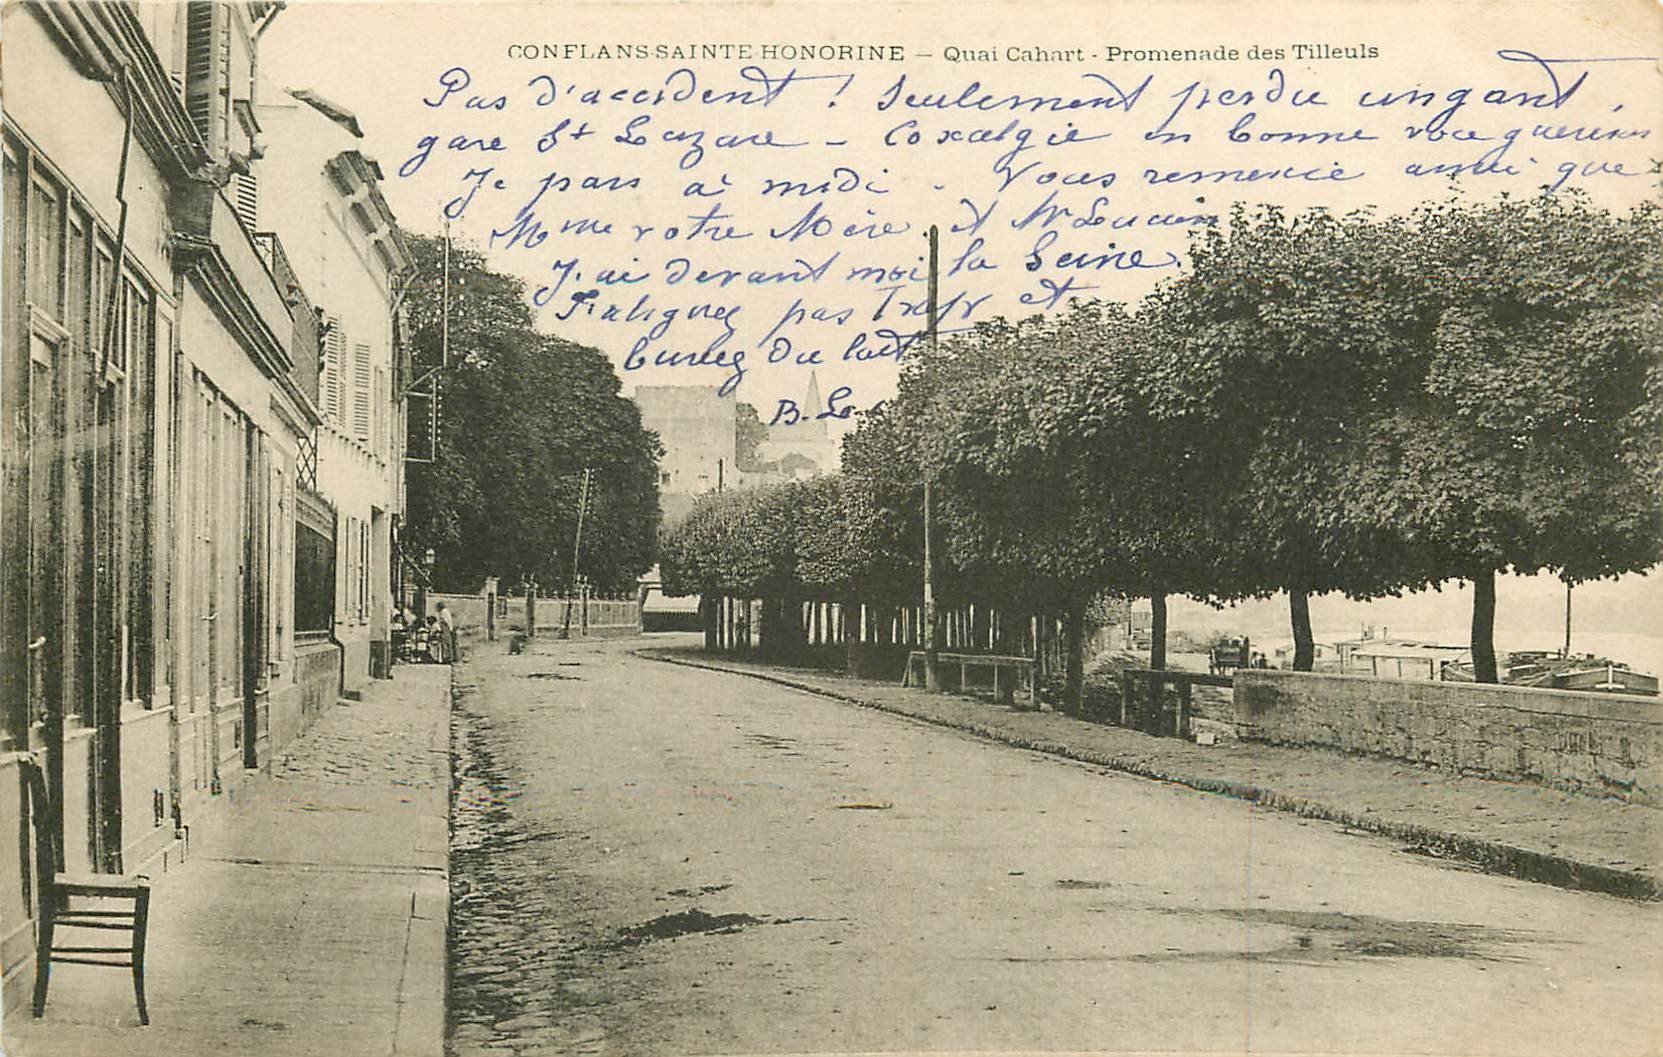 CONFLANS-SAINTE-HONORINE — Quai Cahart - Promenade des Tilleuls
Pas d'accident ! Seulement perdu un gant,
gare St Lazare - Coxalgie en bonne voie guérison
Je pars à midi. Vous remercie ainsi que
Mme votre Mère. et Mr Lucien
J'ai devant moi la Seine.
Fatiguez pas trop et
buvez du lait
B. L.